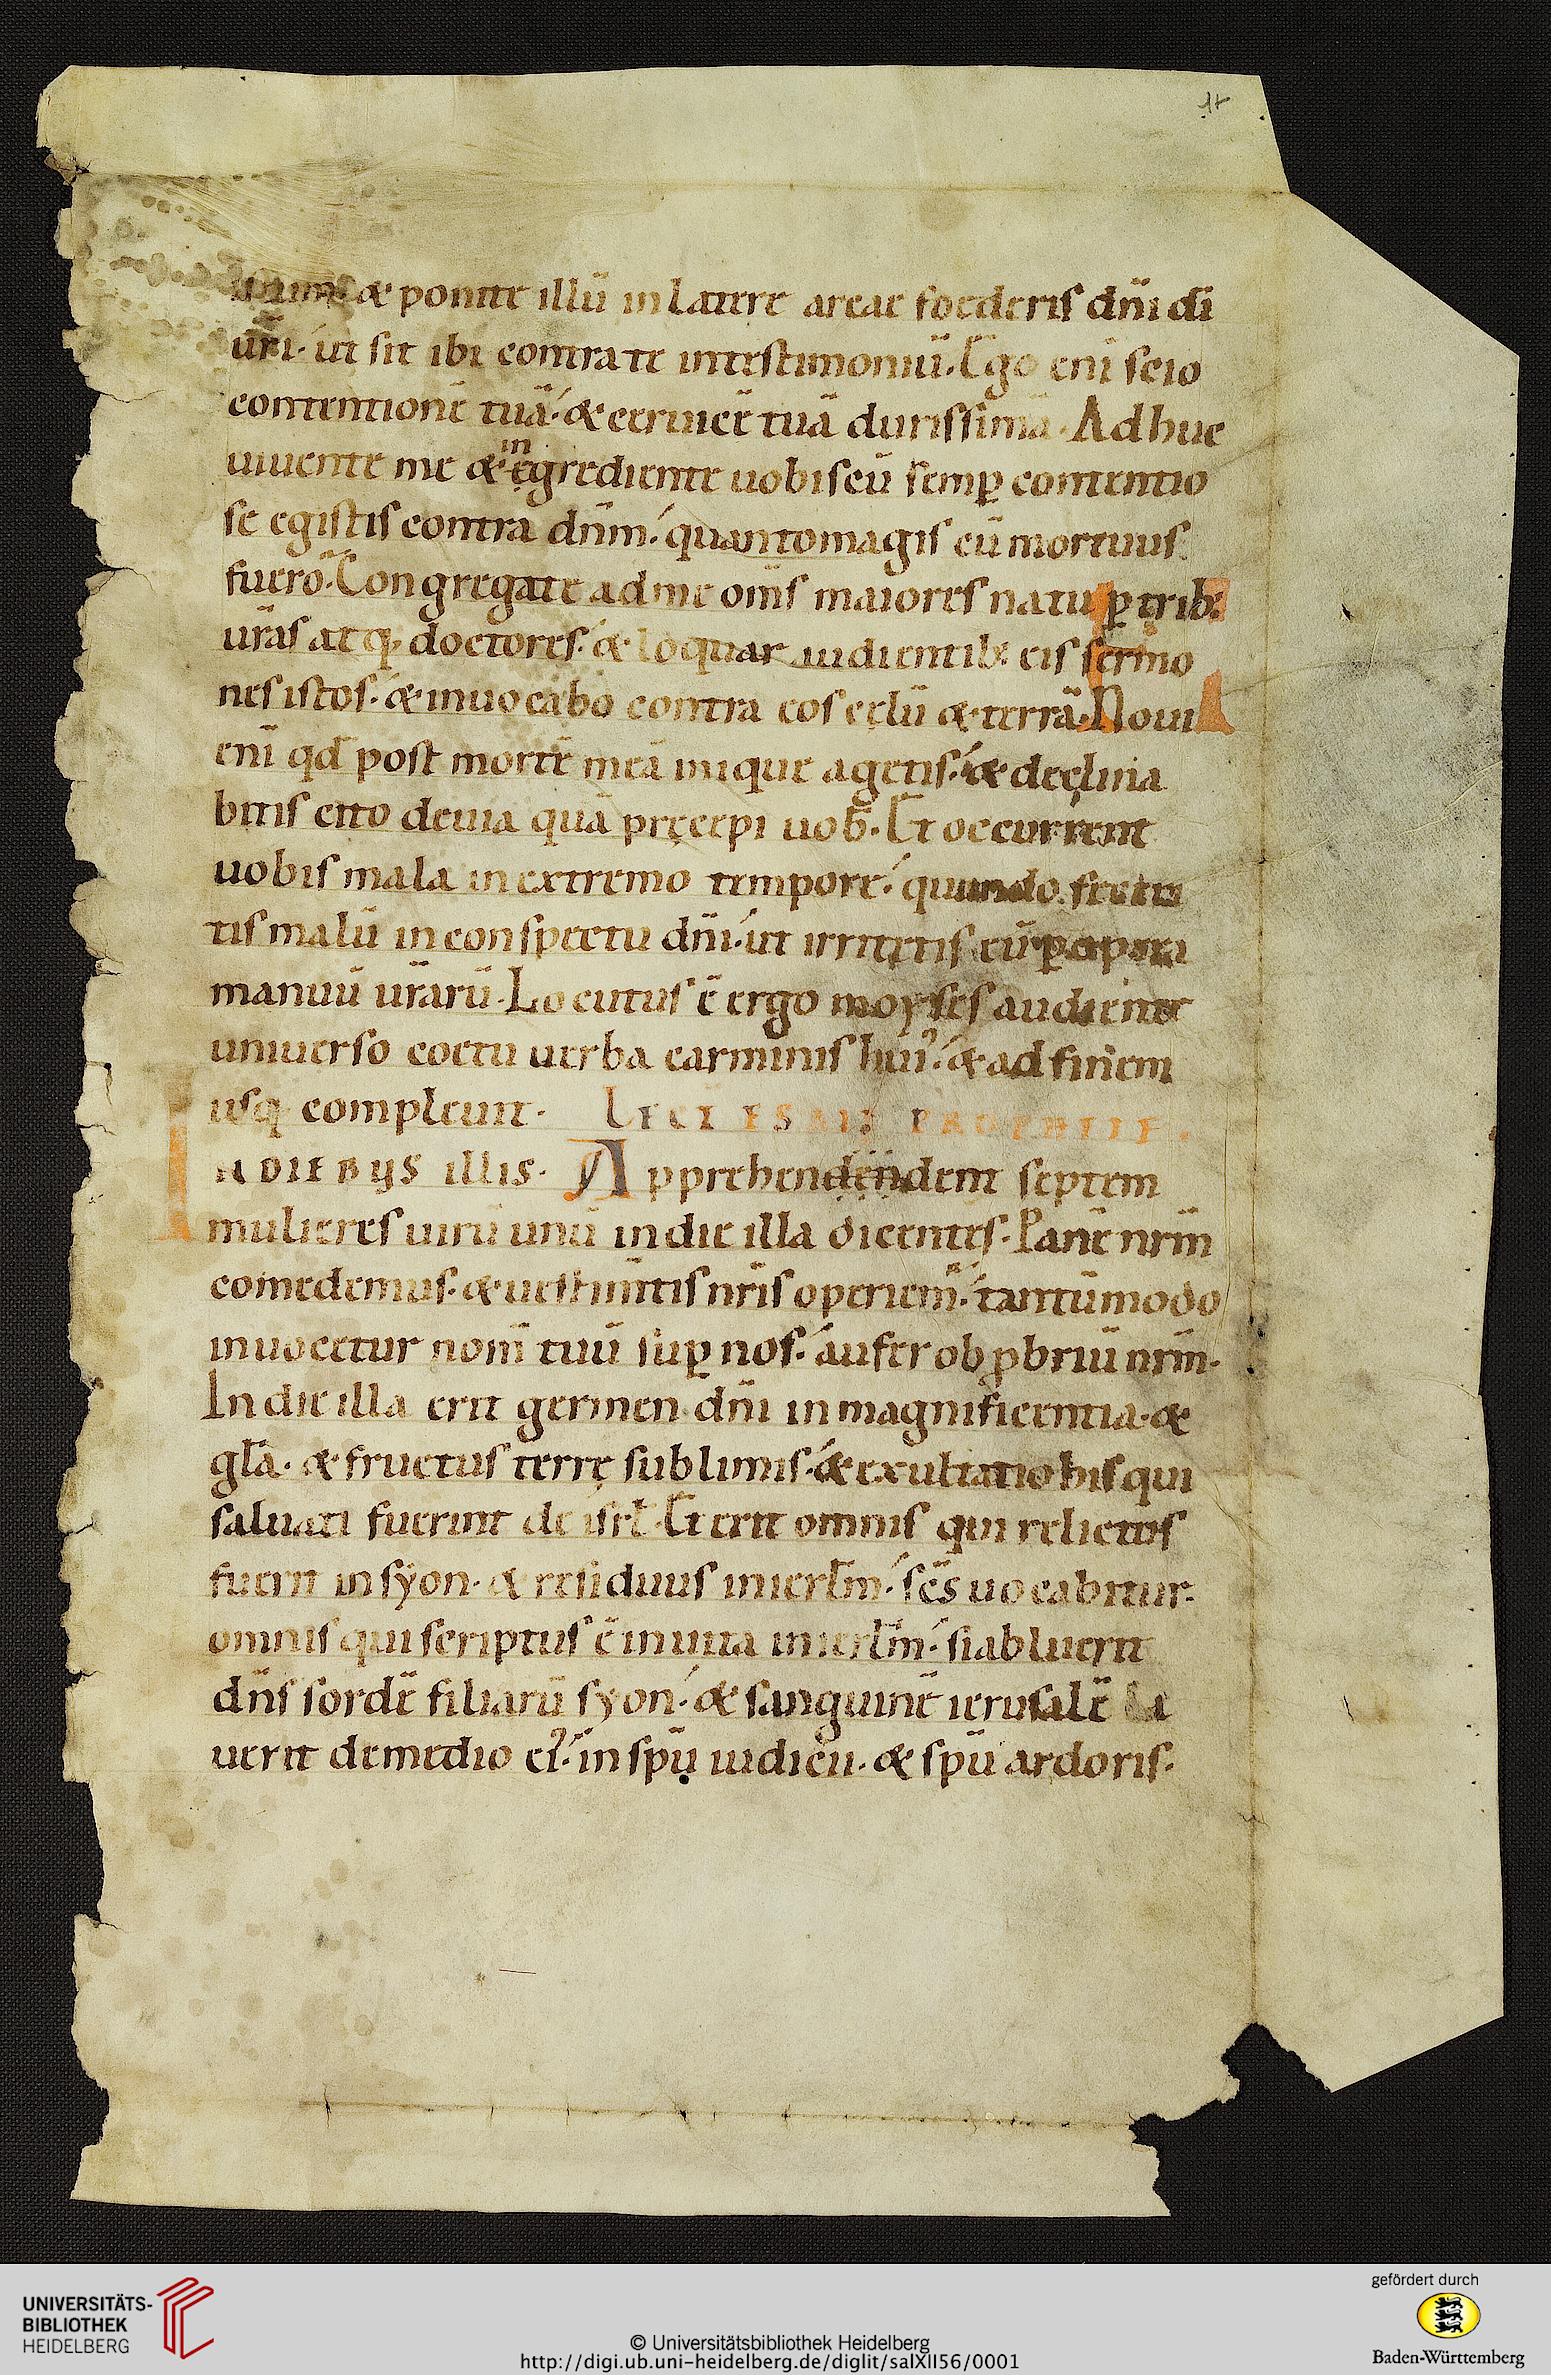 1r
istum & ponite illū in latere arcae foederis dñi dī
ur̄i· ut sit ibi contra te in testimoniū. Ego enī scio
contentionē tuā· & ceruicē tuā durissimā. Adhuc
in
uiuente me & egrediente uobiscū semp̱ contentio
se egistis contra dn̄m· quantomagis cū mortuus
fuero. Congregate ad me om̄s maiores natu p̱ trib;
ur̄as atq; doctores· & loquar audientib; eis sermo
nes istos· & inuocabo contra eos cęlū & terrā. Noui
enī qd̄ post mortē meā inique agetis· & declina
bitis cito de uia quā pręcepi uob̄. Et occurrent
uobis mala in extremo tempore· quando feceri
tis malū in conspectu dn̄i· ut irritetis eū p̱ opera
manuū ur̄arū. Locutus ē ergo moyses audiente
uniuerso coetu uerba carminis hui᾿· & ad finem
usq; compleuit. LECT ESAIE PROPHETE.
IN DIEBUS ILLIS. Apprehendendent septem
mulieres uirū unū in die illa dicentes. Panē nr̄m
comedemus· & uestim̄tis nr̄is operiem᾿· tantūmodo
inuocetur nom̄ tuū sup̱ nos· aufer obp̱briū nr̄m.
In die illa erit germen dn̄i in magnificentia· &
gl̄a· & fructus terrę sublimis· & exultatio his qui
saluati fuerint de isrl̄. Et erit omnis qui relictus
fuerit in syon· & residuus in ierl̄m· sc̄s uocabitur·
omnis qui scriptus ē in uita in ierl̄m· si abluerit
dn̄s sordē filiarū syon· & sanguinē ierusalē la
uerit de medio ei᾿· in spū iudicii· & spū ardoris.
UNIVERSITÄTS-
BIBLIOTHEK
HEIDELBERG
© Universitätsbibliothek Heidelberg
http://digi.ub.uni-heidelberg.de/diglit/salXII56/0001
gefördert durch
Baden-Württemberg